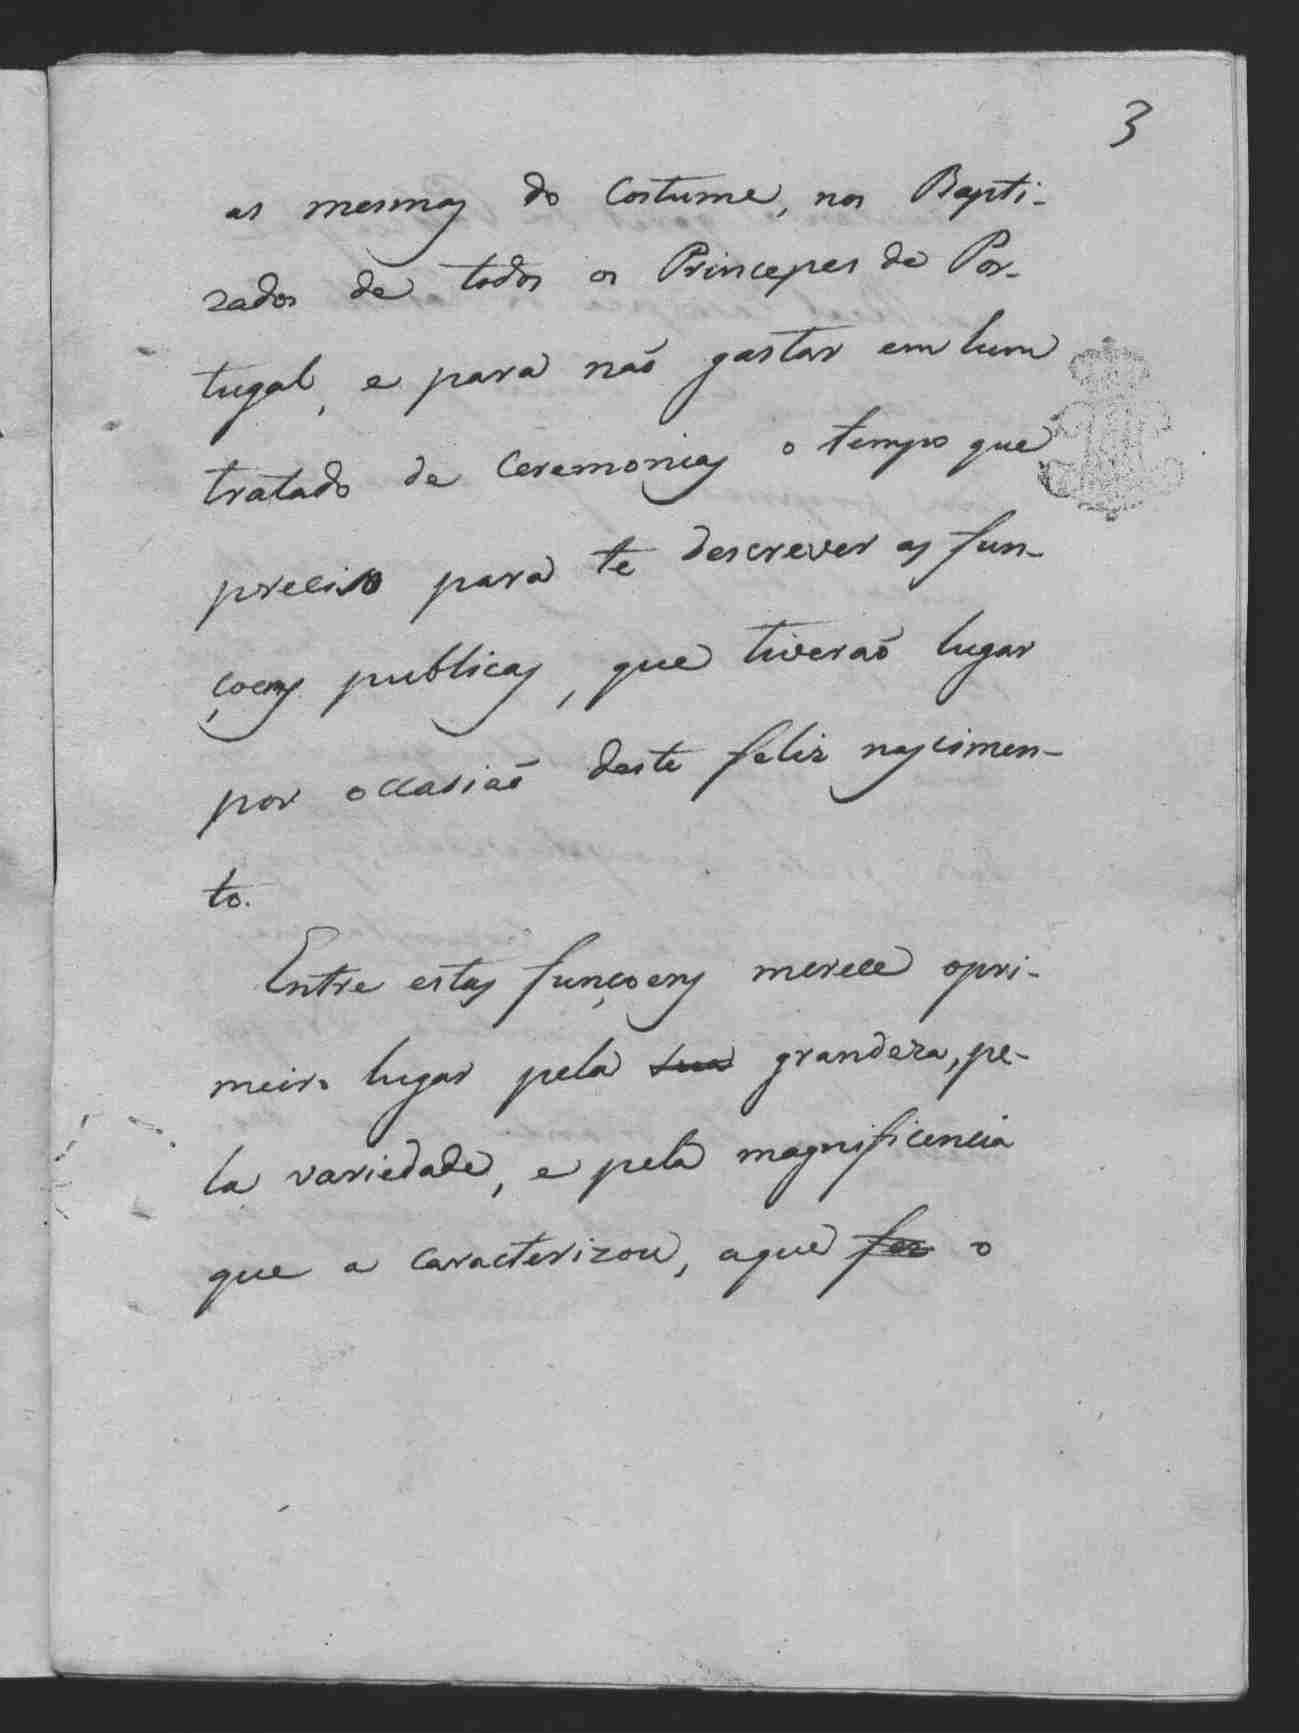 3
as mesmas do Costume, nos Bapti-
zados de todos os Princepes de Por-
tugal, e para não gastar em hum
tratado de Ceremonias o tempo que
preciso para te descrever as fun-
çoens publicas, que tiveraõ lugar
por occasiaõ deste feliz nascimen-
to.
Entre estas funçoens merece o pri-
meiro lugar pela sua grandeza, pe-
la variedade, e pela magnificencia
que a caracterizou, a que fez o